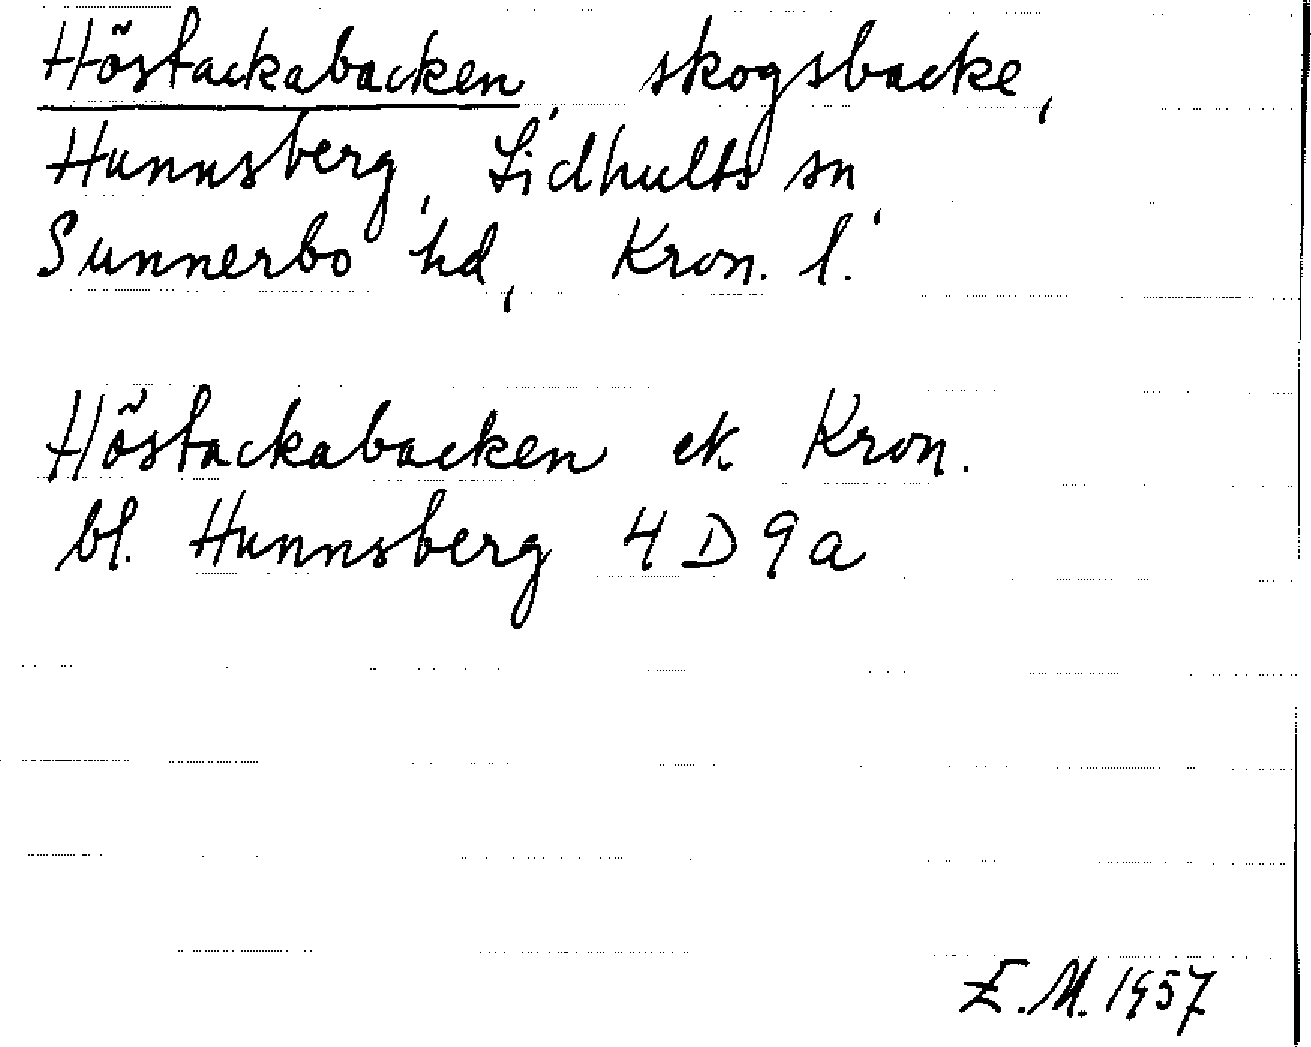 Höstackabacken, skogsbacke,
Hunnsberg, Lidhults sn,
Sunnerbo hd, Kron. l.
Höstackabacken ek. Kron.
bl. Hunnsberg 4D9a
E.M. 1957